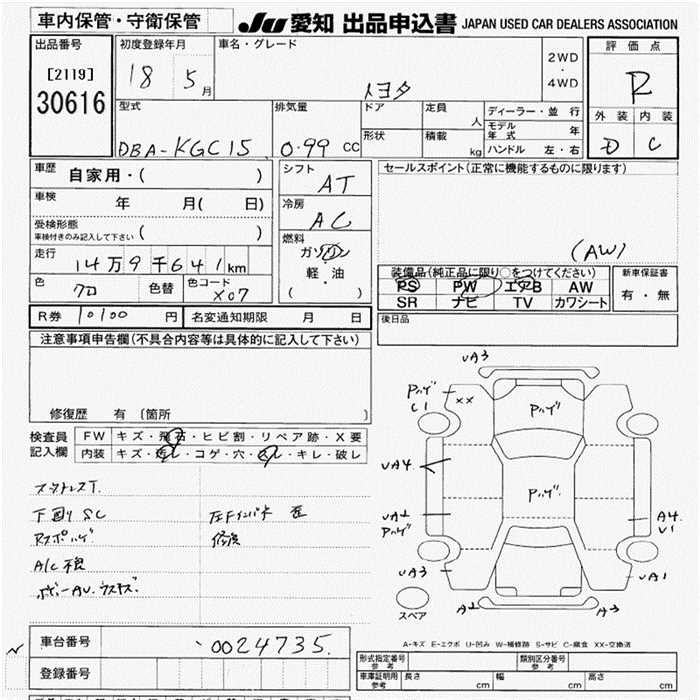 車内保管・守衛保管
JU 愛知 出品申込書 JAPAN USED CAR DEALERS ASSOCIATION
出品番号
[2119]
30616
初度登録年月
18 5月
車名・グレード
トヨタ
2WD
・
4WD
評価点
R
外装 内装
D C
型式
DBA-KGC15
排気量
0.99 cc
ドア
定員
人
形状
積載
kg
ディーラー・並行
モデル年式 年
ハンドル 左・右
車歴 自家用・( )
車検 年 月( 日)
受検形態
車検付きのみ記入して下さい ( )
走行
14万9千641km
色 クロ 色替 色コード X07
シフト
AT
冷房
AC
燃料
ガソリン
軽・油
( )
セールスポイント(正常に機能するものに限ります)
(AW)
装備品(純正品に限り〇をつけてください)
PS PW エアB AW
SR ナビ TV カワシート
新車保証書
有・無
後日品
R券 10100 円 名変通知期限 月 日
注意事項申告欄(不具合内容等は具体的に記入して下さい)
修復歴 有 [箇所 ]
検査員記入欄
FW キズ・飛石・ヒビ割・リペア跡・X要
内装 キズ・汚レ・コゲ・穴・スレ・キレ・破レ
下回り SC
A/C 不良
修復
UA3
Pハゲ
C1
XX
Pハゲ
UA4
Pハゲ
UA2
Pハゲ
A4
U1
UA3
UA1
A2
A3
スペア
A-キズ E-エクボ U-凹み W-補修跡 S-サビ C-腐食 XX-交換済
車台番号 0024735
登録番号
形式指定番号
参考
類別区分番号
参考
車庫証明用
参考
長さ cm 幅 cm 高さ cm